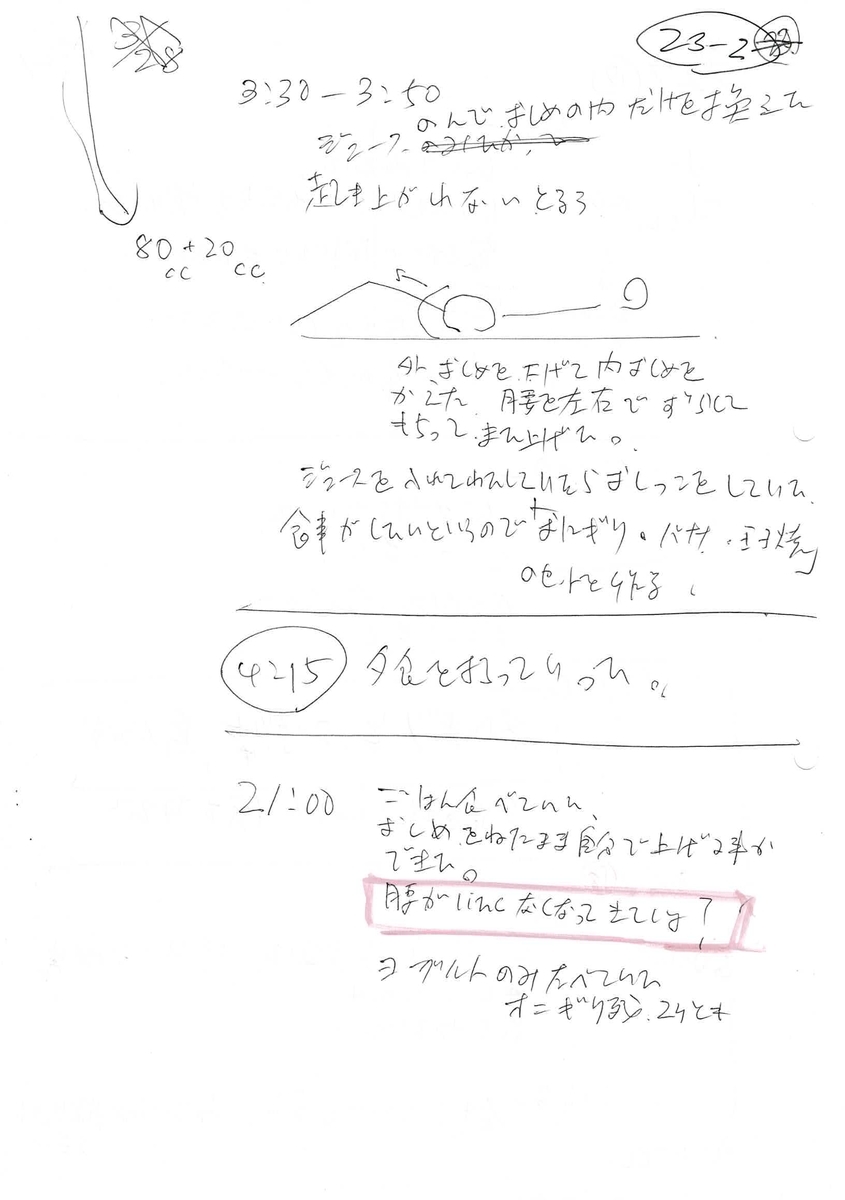 3/28
23-2
3:30-3:50
のんで おしめの内だけを換えた
ジュース
起き上がれないとろろ
80cc+20cc
外おしめを下げて内おしめを
かえた 腰を左右でずらして
もらって また上げた。
ジュースを入れてわたしていたらおしっこをしていた
食事がしたいというので おにぎり。バナナ・玉子焼
のセットを作る。
4:15 夕食を持っていった。
21:00 ごはん食べていた、
おしめをねたまま自分で上げる事が
できた。
腰が なくなってきてる?
ヨーグルトのみたべていた
オニぎり残.2ケとも